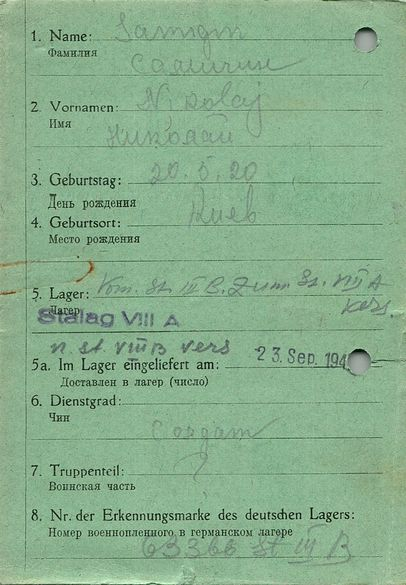 1. Name: Samgin
Фамилия
Самгин
2. Vornamen: Nikolaj
Имя
Николай
3. Geburtstag: 20.5.20
День рождения
4. Geburtsort: Киев
Место рождения
5. Lager: Vom. St. III B. Zum St. VIII A
Лагерь
Stalag VIII A
n. St. VIII B vers
5a. Im Lager eingeliefert am: 23. Sep. 194
Доставлен в лагер (число)
6. Dienstgrad:
Чин
Солдат
7. Truppenteil:
Воинская часть
?
8. Nr. der Erkennungsmarke des deutschen Lagers:
Номер военнопленного в германском лагере
63366 St III B